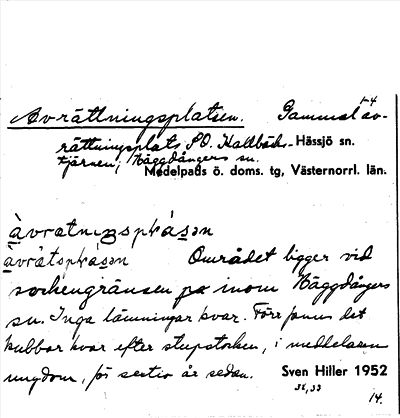 1-4
Avrättningsplatsen. Gammal av-
rättningsplats SO. Kallbäcks- Hässjö sn.
tjärnen, Häggdångers sn.
Medelpads ö. doms. tg, Västernorrl. län.
àvrat​niŋspḷásən
àvrätspḷásən Området ligger vid
sockengränsen på inom Häggdångers
sn. Inga lämningar kvar. Förr fanns det
kubbar kvar efter stupstocken, i meddelaren
ungdom, för sextio år sedan. Sven Hiller 1952
32,33
14.